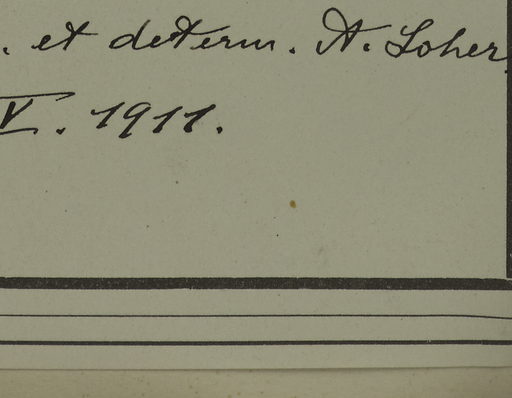 . et determ. A. Loher
V. 1911.